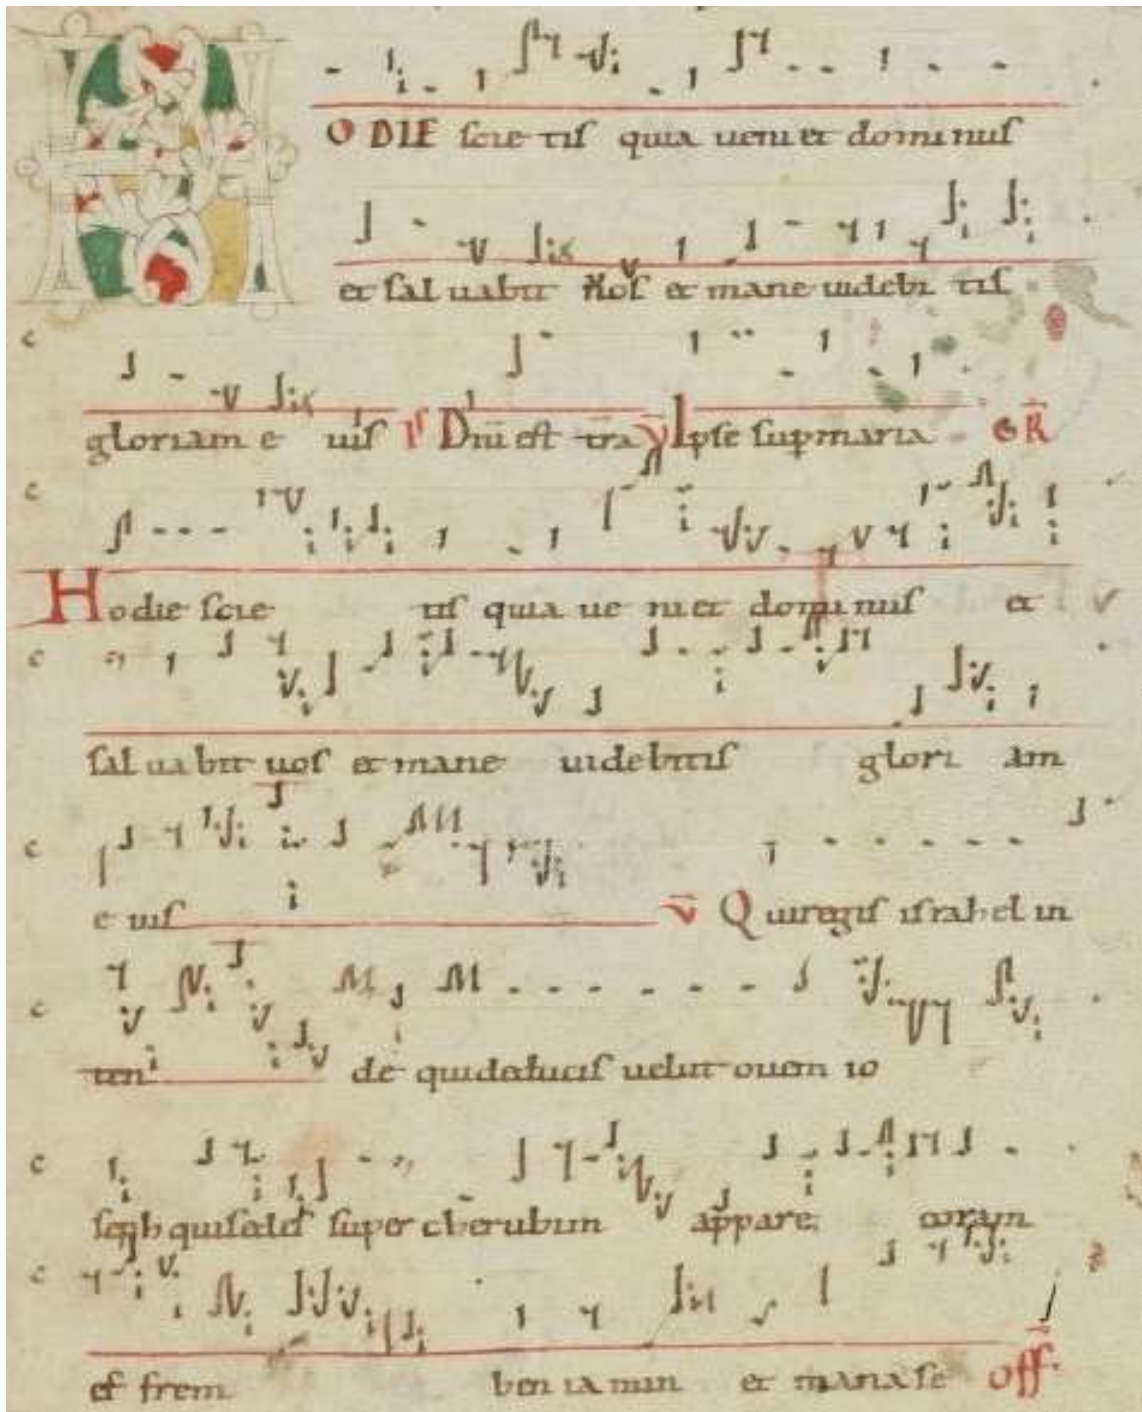 HODIE scietis quia ueniet dominus
et saluabit nos et mane uidebitis
gloriam eius ps Dnī est trā V̄ Ipse sup maria GR̄
Hodie scietis quia ueniet dominus et
saluabit uos et mane uidebitis gloriam
eius V̄ Qui regis israhel in
tende qui deducis uelut ouem io
seph qui sedes super cherubim appare coram
effrem beniamin et manase off